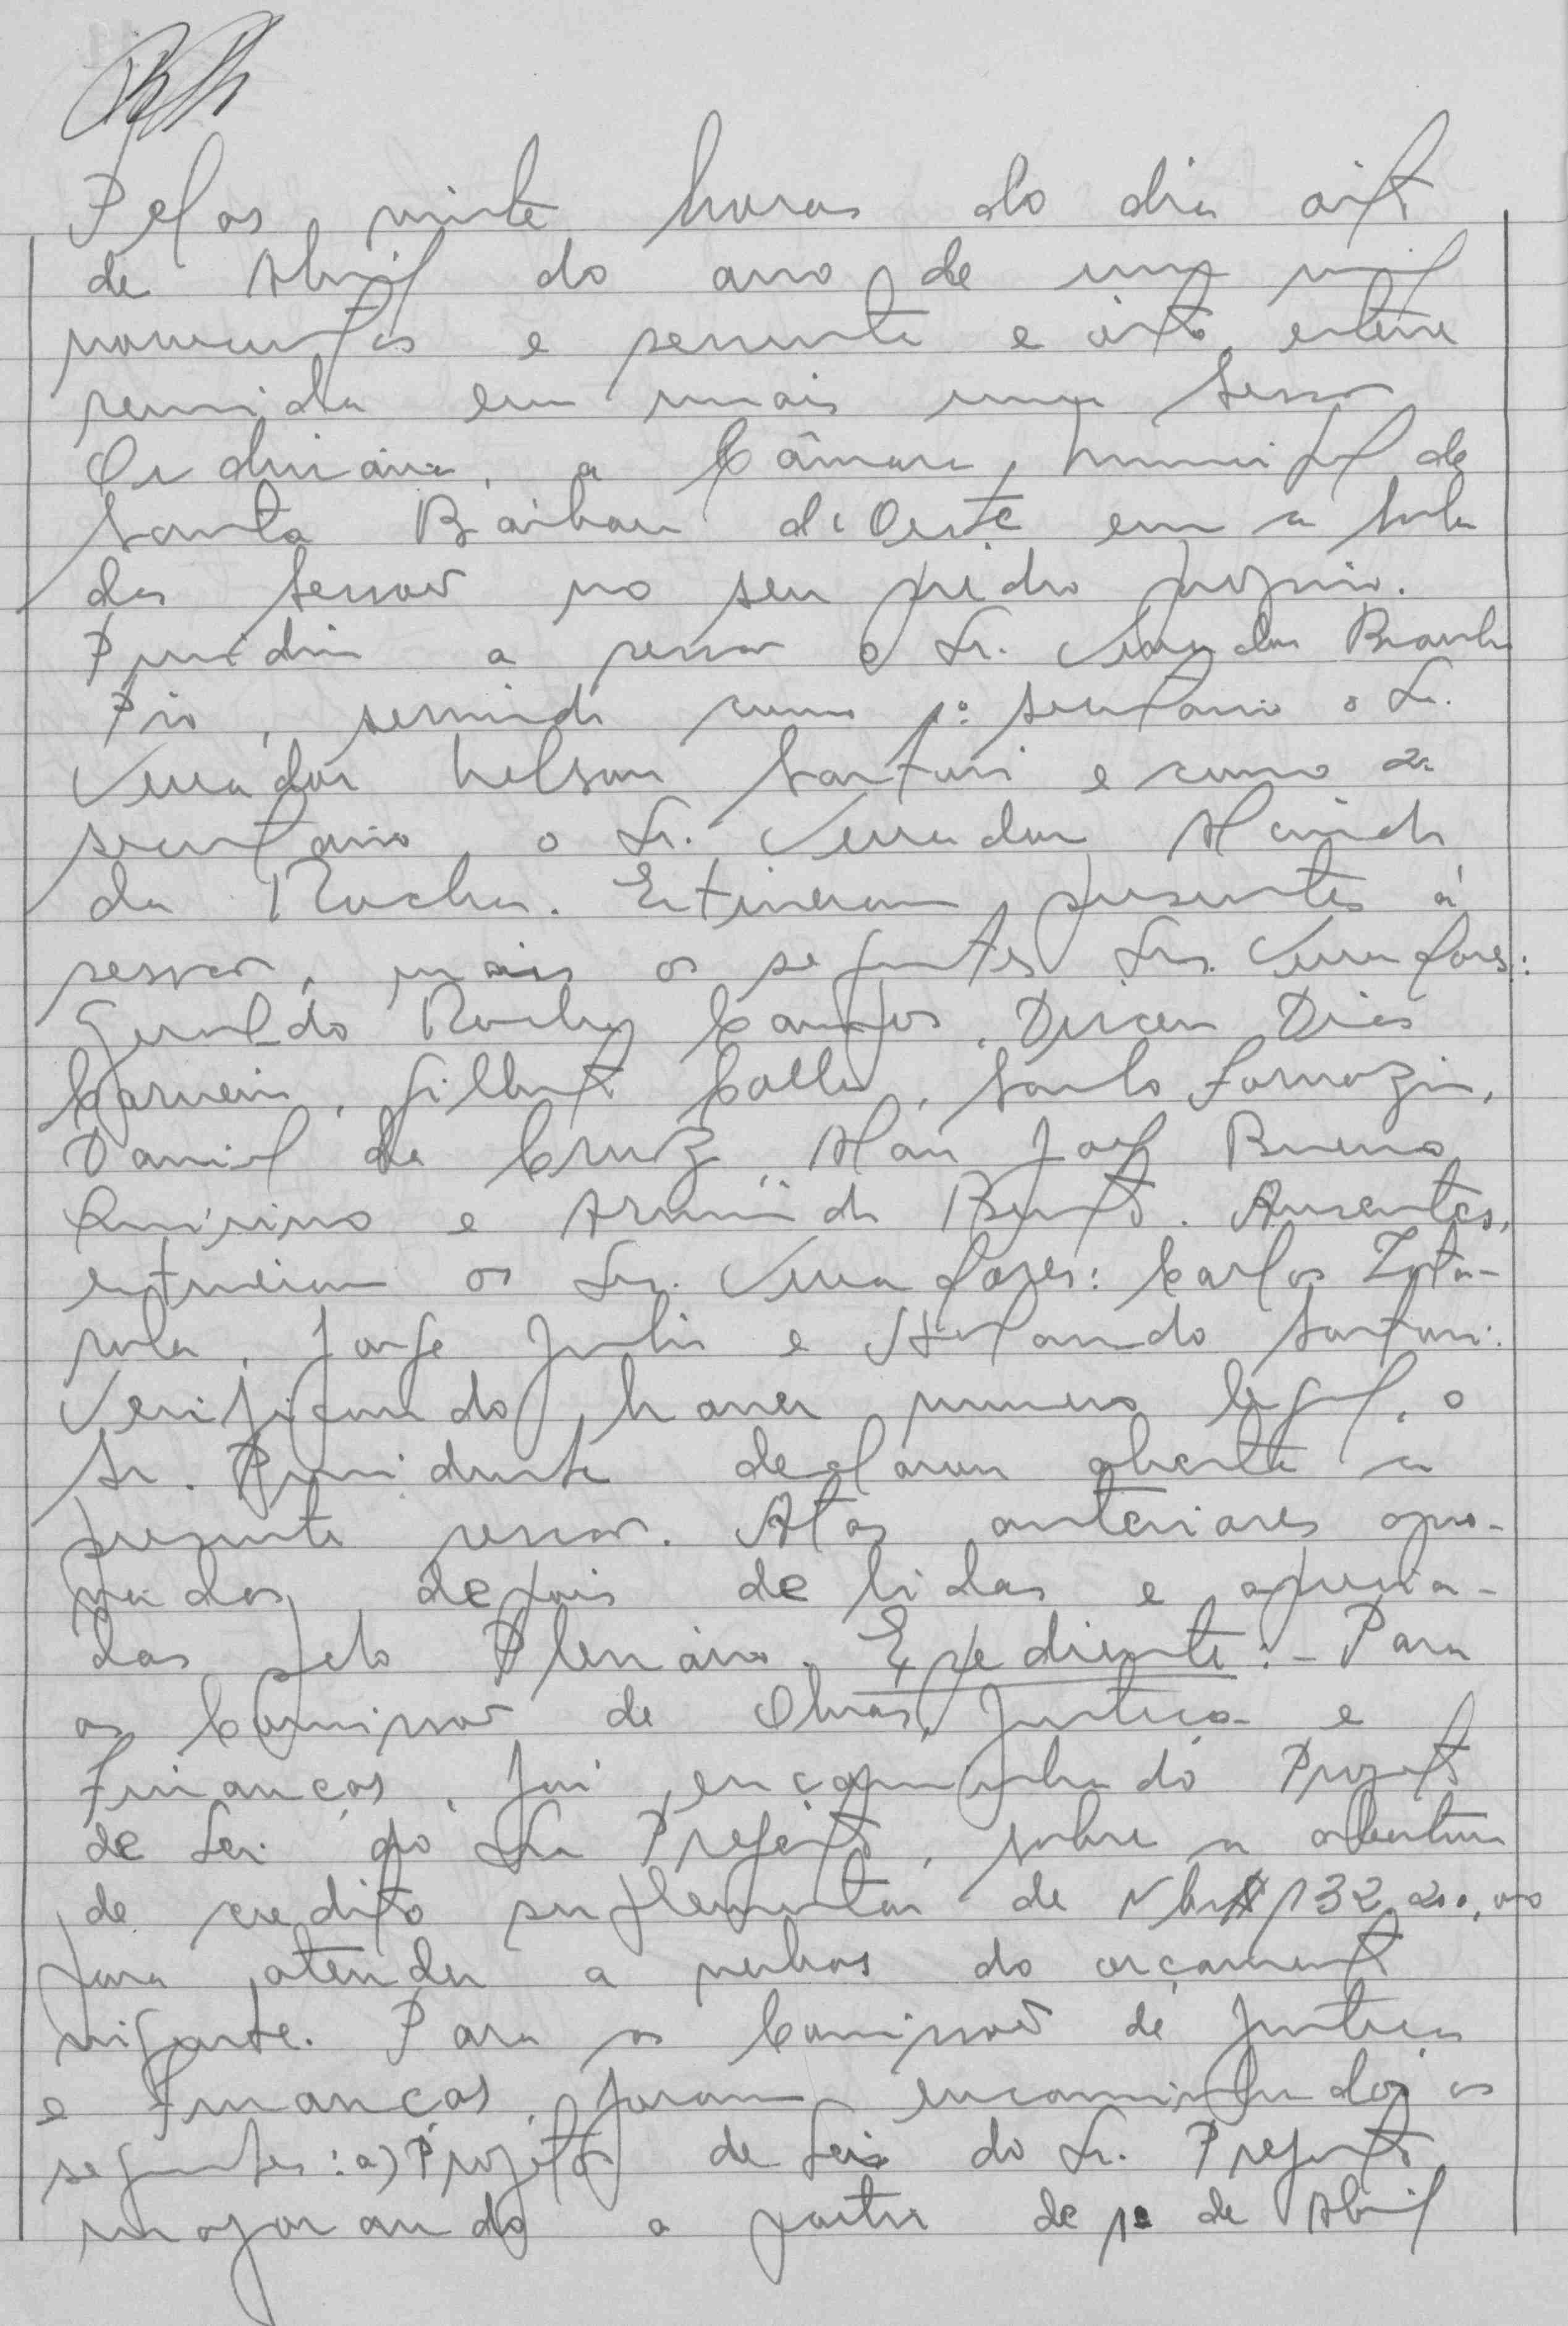 Pelas vinte horas do dia oito
de Abril do ano de um mil
novecentos e sessenta e oito, esteve
reunida em mais uma Sessão
Ordinária, a Câmara Municipal de
Santa Bárbara d'Oeste em a Sala
das Sessões no seu prédio próprio.
Presidiu a sessão o Sr. Vereador Braulio
Pio, servindo como 1º secretario o Sr.
Vereador Nelson Sartori e como 2º
secretario o Sr. Vereador Alcindo
da Rocha. Estiveram presentes à
sessão, mais os seguintes Srs. Vereadores:
Geraldo Rocha Campos, Dirceu Dias
Carneiro, Gilberto Calla, Santo Tomazin,
Daniel de Cruz, Alan José Bueno
Quirino e Armindo Bento. Ausentes,
estiveram os Srs. Vereadores: Carlos
Jorge Julio e Orlando Sartori.
Verificando haver numero legal, o
Sr. Presidente declarou aberta a
presente sessão. Atas anteriores apro-
vadas depois de lidas e aprecia-
das pelo Plenário. Expediente:- Para
as Comissões de Obras, Justiça e
Finanças, foi encaminhado Projeto
de Lei do Sr. Prefeito, sobre a abertura
de credito suplementar de NCr$ 132.200,00
para atender a verbas do orçamento
vigente. Para as Comissões de Justiça
e Finanças, foram encaminhados os
seguintes: a) Projeto de Lei do Sr. Prefeito
majorando a partir de 1º de Abril